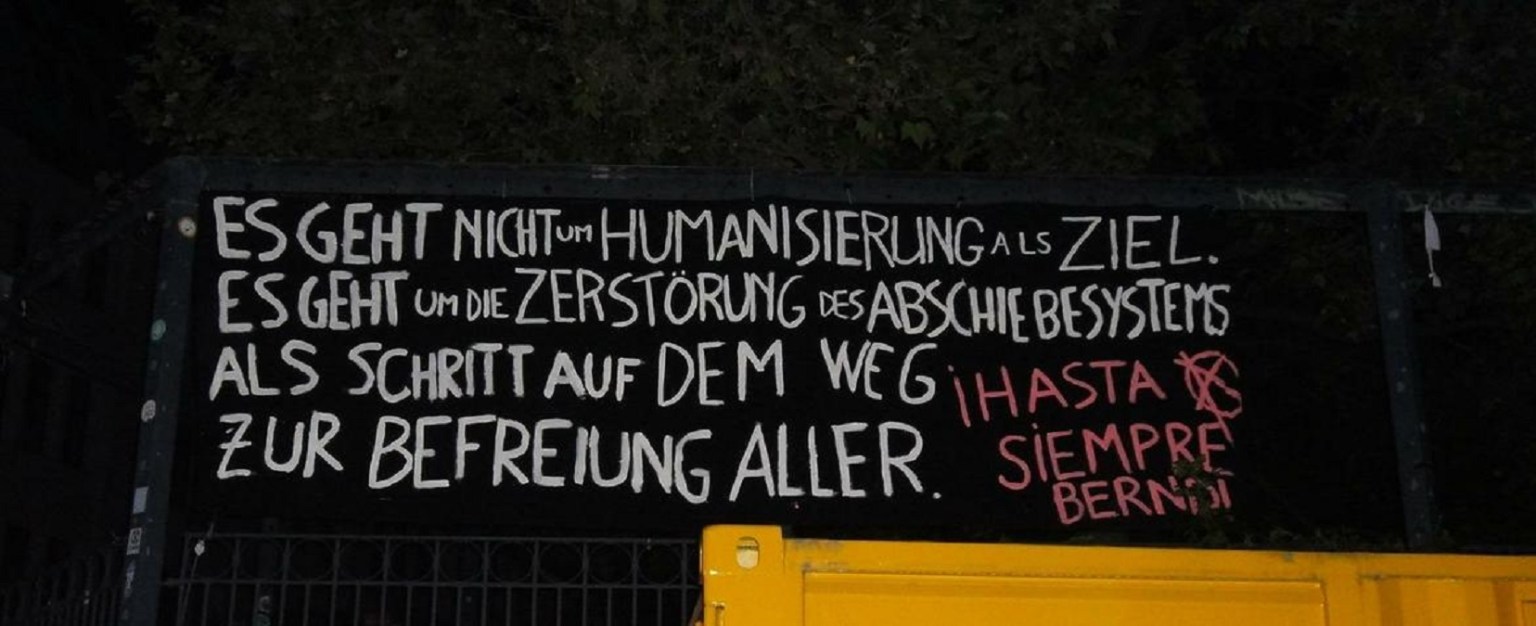 ES GEHT NICHT UM HUMANISIERUNG ALS ZIEL.
ES GEHT UM DIE ZERSTÖRUNG DES ABSCHIEBESYSTEMS
ALS SCHRITT AUF DEM WEG
ZUR BEFREIUNG ALLER.
¡HASTA
SIEMPRE